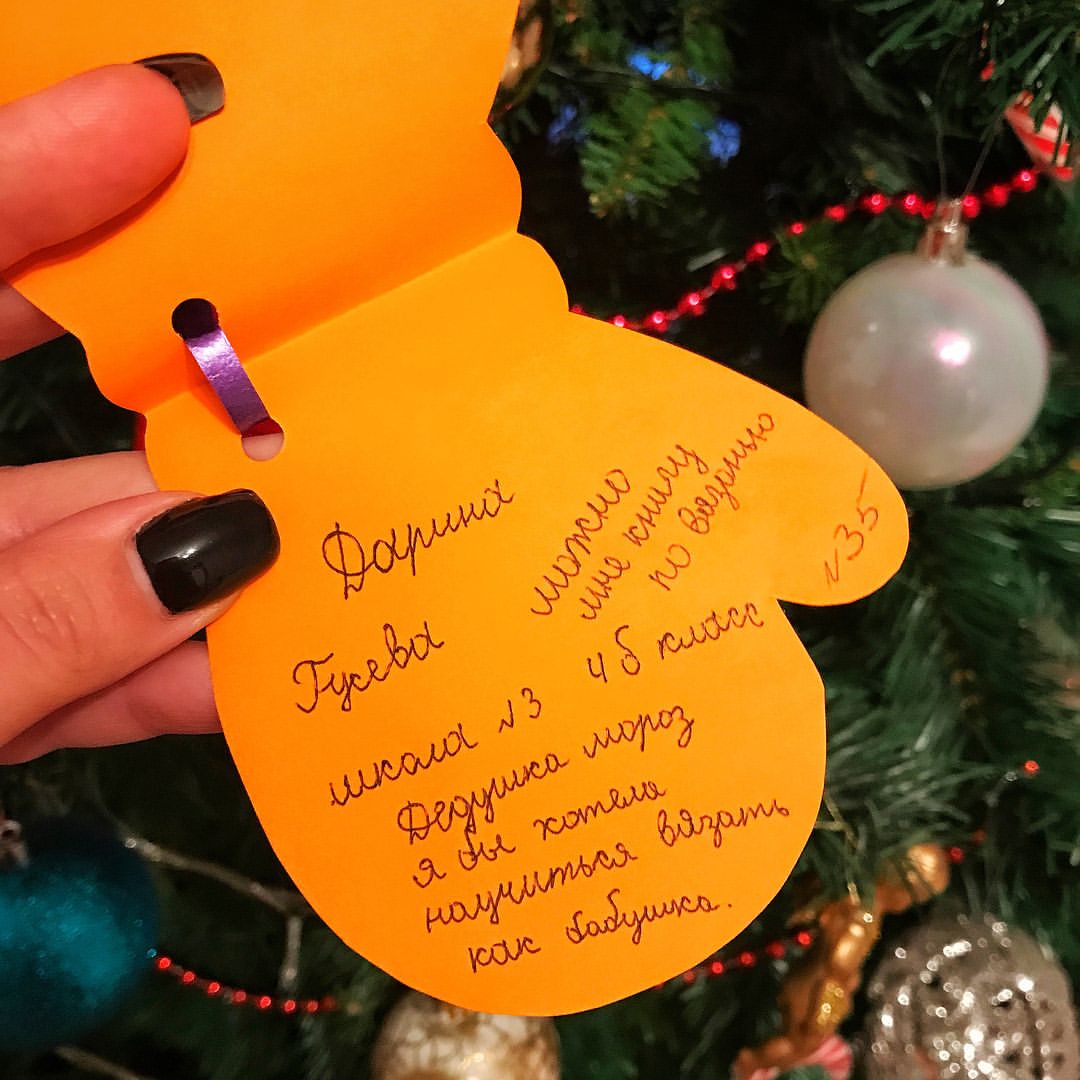 Дарина
Гусева
школа №3 4 б класс
Дедушка мороз
я бы хотела
научиться вязать
как бабушка.
можно
мне книгу
по вязанью
№35